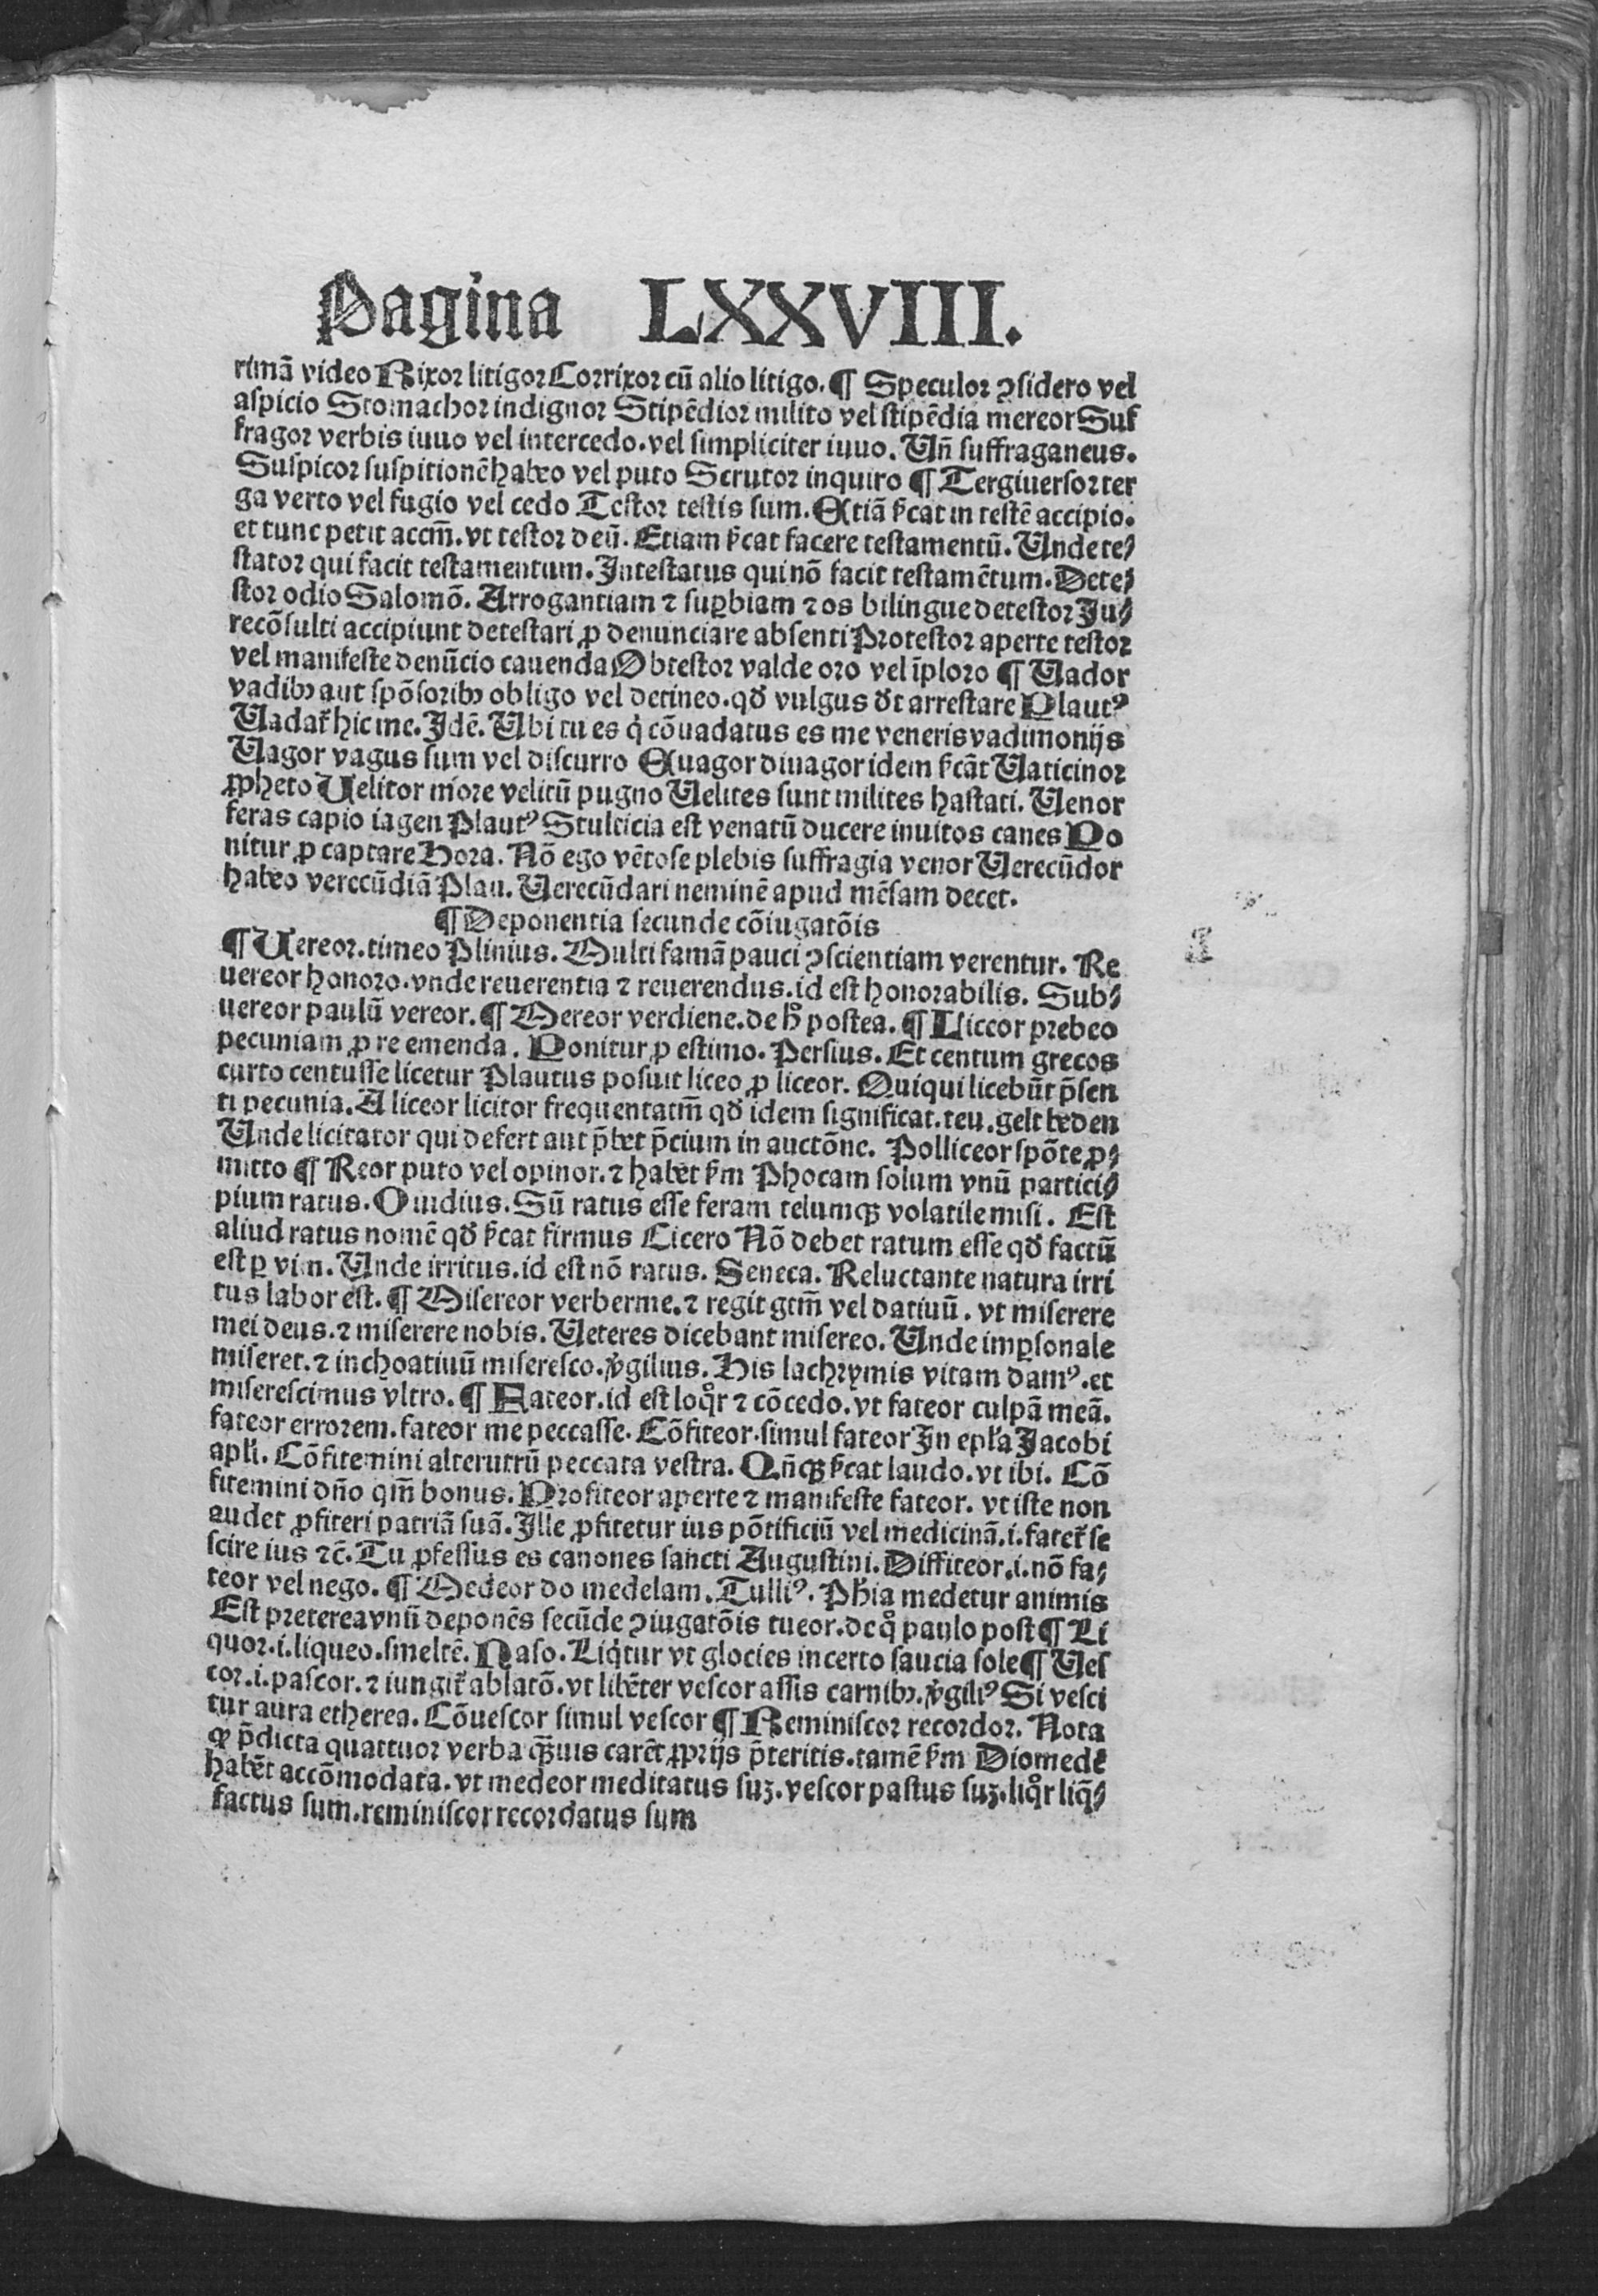 Pagina LXXVIII.
rimā video Rixor litigor Corrixor cū alio litigo. ¶ Speculor ꝯsidero vel
aspicio Stomachor indignor Stipēdior milito vel stipēdia mereor Suf
fragor verbis iuuo vel intercedo. vel simpliciter iuuo. Un̄ suffraganeus.
Suspicor suspitionē habeo vel puto Scrutor inquiro ¶ Tergiuersor ter
ga verto vel fugio vel cedo Testor testis sum. Etiā ſ̉cat in testē accipio.
et tunc petit accm̄. vt testor deū. Etiam ſ̉cat facere testamentū. Unde te⸗
stator qui facit testamentum. Intestatus qui nō facit testamētum. Dete⸗
stor odio Salomō. Arrogantiam ⁊ suꝑbiam ⁊ os bilingue detestor Ju⸗
recōsulti accipiunt detestari ꝓ denunciare absenti Protestor aperte testor
vel manifeste denūcio cauenda Obtestor valde oro vel īploro ¶ Uador
vadibꝫ aut spōsoribꝫ obligo vel detineo. qd̓ vulgus d̓t arrestare Plautꝰ
Uadat̉ hic me. Idē. Ubi tu es q̇ cōuadatus es me veneris vadimonijs
Uagor vagus sum vel discurro Euagor diuagor idem ſ̉cāt Uaticinor
ꝓpheto Uelitor more velitū pugno Uelites sunt milites hastati. Uenor
feras capio iagen Plautꝰ Stulticia est venatū ducere inuitos canes Po
nitur ꝓ captare Hora. Nō ego vētose plebis suffragia venor Uerecūdor
habeo verecūdiā Plau. Uerecūdari neminē apud mēsam decet.
¶ Deponentia secunde cōiugatōis
¶ Uereor. timeo Plinius. Multi famā pauci ꝯscientiam verentur. Re
uereor honoro. vnde reuerentia ⁊ reuerendus. id est honorabilis. Sub⸗
uereor paulū vereor. ¶ Mereor verdiene. de h̊ postea. ¶ Liceor prebeo
pecuniam ꝓ re emenda. Ponitur ꝓ estimo. Persius. Et centum grecos
curto centusse licetur Plautus posuit liceo ꝓ liceor. Quiqui licebūt p̄sen
ti pecunia. A liceor licitor frequentatm̄ qd̓ idem significat. teu. gelt beden
Unde licitator qui defert aut p̄bet p̄cium in auctōne. Polliceor spōte ꝓ⸗
mitto ¶ Reor puto vel opinor. ⁊ habet ſ̉m Phocam solum vnū partici⸗
pium ratus. Ouidius. Sū ratus esse feram telumqꝫ volatile misi. Est
aliud ratus nomē qd̓ ſ̉cat firmus Cicero Nō debet ratum esse qd̓ factū
est ꝑ vim. Unde irritus. id est nō ratus. Seneca. Reluctante natura irri
tus labor est. ¶ Misereor verberme. ⁊ regit gtm̄ vel datiuū. vt miserere
mei deus. ⁊ miserere nobis. Ueteres dicebant misereo. Unde imꝑsonale
miseret. ⁊ inchoatiuū miseresco. v̓gilius. His lachrymis vitam damꝰ. et
miserescimus vltro. ¶ Fateor. id est loqr̊ ⁊ cōcedo. vt fateor culpā meā.
fateor errorem. fateor me peccasse. Cōfiteor. simul fateor In epl̓a Jacobi
apl̓i. Cōfitemini alterutrū peccata vestra. Qn̄qꝫ ſ̉cat laudo. vt ibi. Cō
fitemini dn̄o qm̄ bonus. Profiteor aperte ⁊ manifeste fateor. vt iste non
audet ꝓfiteri patriā suā. Ille ꝓfitetur ius pōtificiū vel medicinā. i. fatet̉ se
scire ius ⁊c̄. Tu ꝓfessus es canones sancti Augustini. Diffiteor. i. nō fa⸗
teor vel nego. ¶ Medeor do medelam. Tulliꝰ. Ph̓ia medetur animis
Est preterea vnū deponēs secūde ꝯiugatōis tueor. de q̊ paulo post ¶ Li
quor. i. liqueo. smeltē. Naso. Liq̇tur vt glocies incerto saucia sole ¶ Ues
cor. i. pascor. ⁊ iungit̉ ablatō. vt libēter vescor assis carnibꝫ. v̓giliꝰ Si vesci
tur aura etherea. Cōuescor simul vescor ¶ Reminiscor recordor. Nota
ꝙ p̄dicta quattuor verba qꝫuis carēt ꝓprijs p̄teritis. tamē ſ̉m Diomedē
habēt accōmodata. vt medeor meditatus suꝫ. vescor pastus suꝫ. liqr̊ liq̄⸗
factus sum. reminiscor recordatus sum